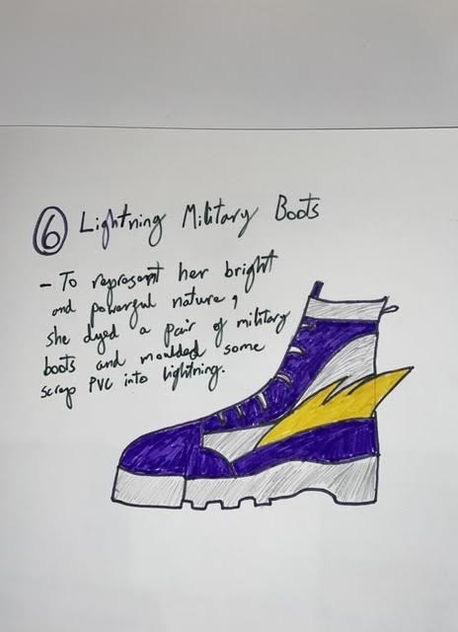 6 Lightning Military Boots
- To represent her bright
and powerful nature,
she dyed a pair of military
boots and moulded some
scrap PVC into lightning.